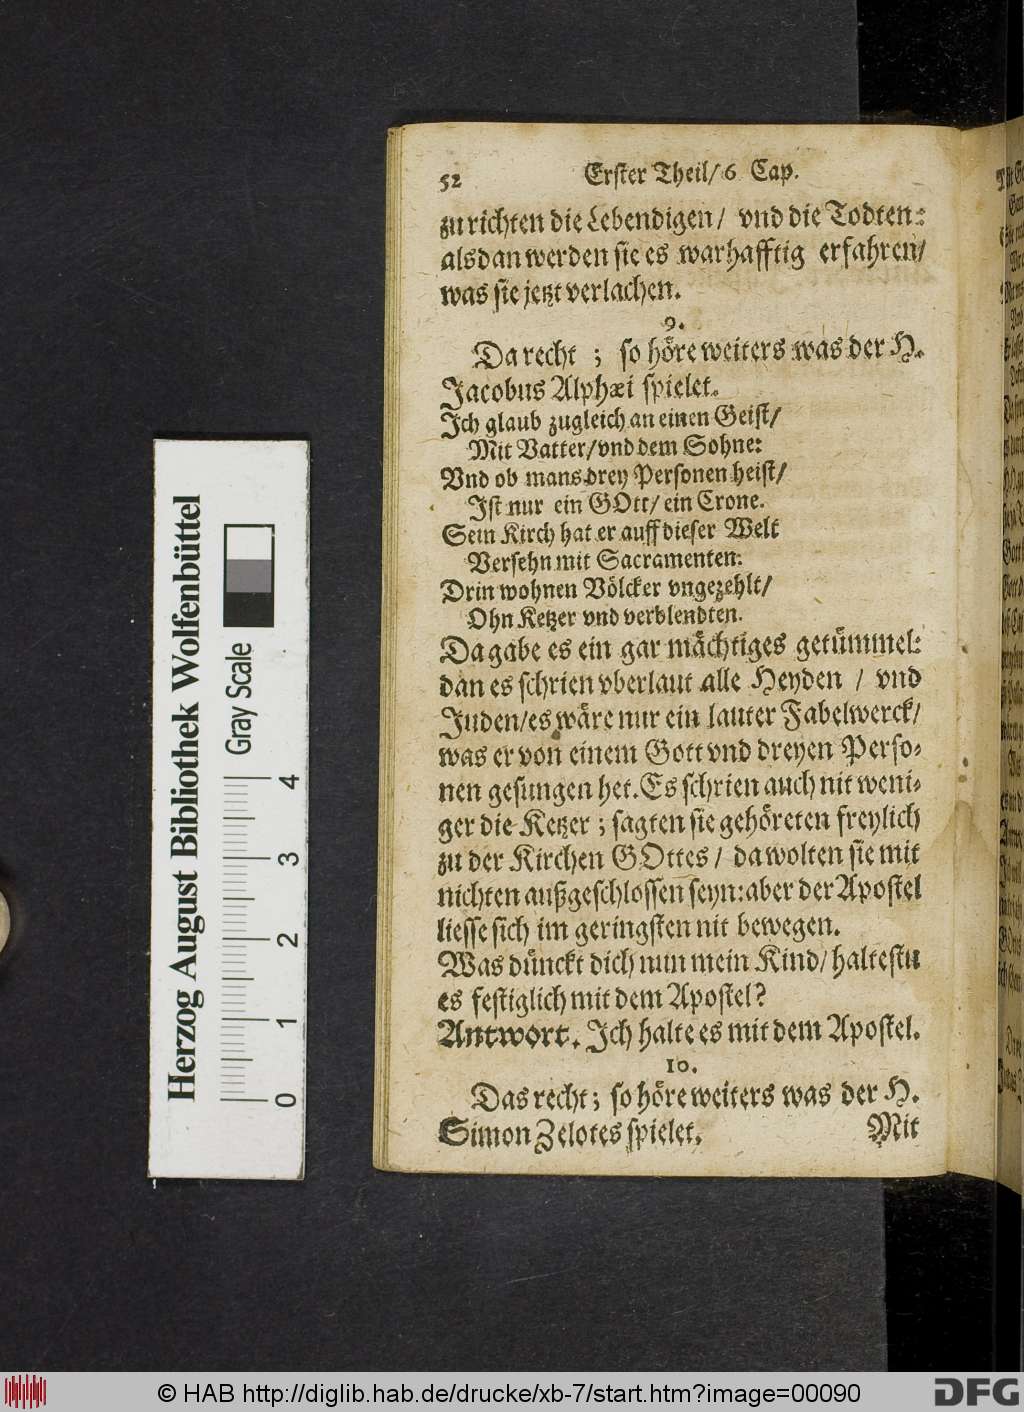 52 Erster Theil/ 6 Cap.
zu richten die Lebendigen/ vnd die Todten:
alsdan werden sie es warhafftig erfahren/
was sie jetzt verlachen.
9.
Da recht ; so höre weiters was der H.
Jacobus Alphæi spielet.
Ich glaub zugleich an einen Geist/
Mit Vatter/ vnd dem Sohne:
Vnd ob mans drey Personen heist/
Ist nur ein GOtt/ ein Crone.
Sein Kirch hat er auff dieser Welt
Versehn mit Sacramenten:
Drin wohnen Völcker vngezehlt/
Ohn Ketzer vnd verblendten.
Da gabe es ein gar mächtiges getümmel:
dan es schrien vberlaut alle Heyden / vnd
Juden/ es wäre nur ein lauter Fabelwerck/
was er von einem Gott vnd dreyen Perso-
nen gesungen het. Es schrien auch nit weni-
ger die Ketzer ; sagten sie gehöreten freylich
zu der Kirchen GOttes / da wolten sie mit
nichten außgeschlossen seyn: aber der Apostel
liesse sich im geringsten nit bewegen.
Was dünckt dich nun mein Kind/ haltestu
es festiglich mit dem Apostel?
Antwort. Ich halte es mit dem Apostel.
10.
Das recht ; so höre weiters was der H.
Simon Zelotes spielet.
Mit
Herzog August Bibliothek Wolfenbüttel
Gray Scale
0 1 2 3 4
© HAB http://diglib.hab.de/drucke/xb-7/start.htm?image=00090
DFG